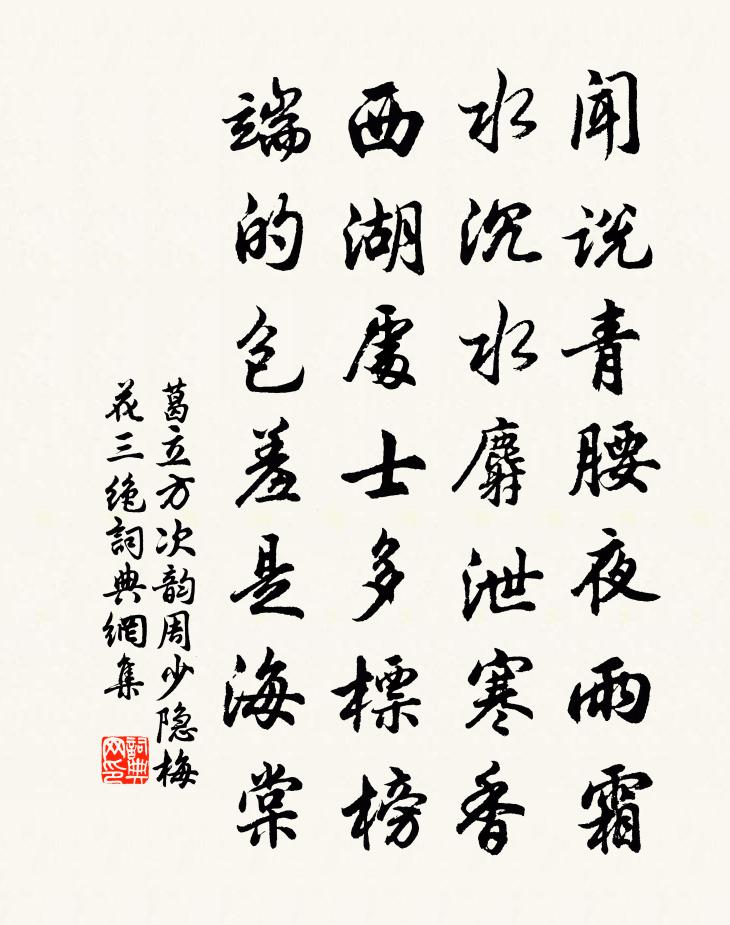 闻说青腰夜雨霜
水沉水麝泄寒香
西湖處士多標榜
端的包羞是海棠
葛立方次韵周少隐梅
花三绝詞典網集
詞典
网印